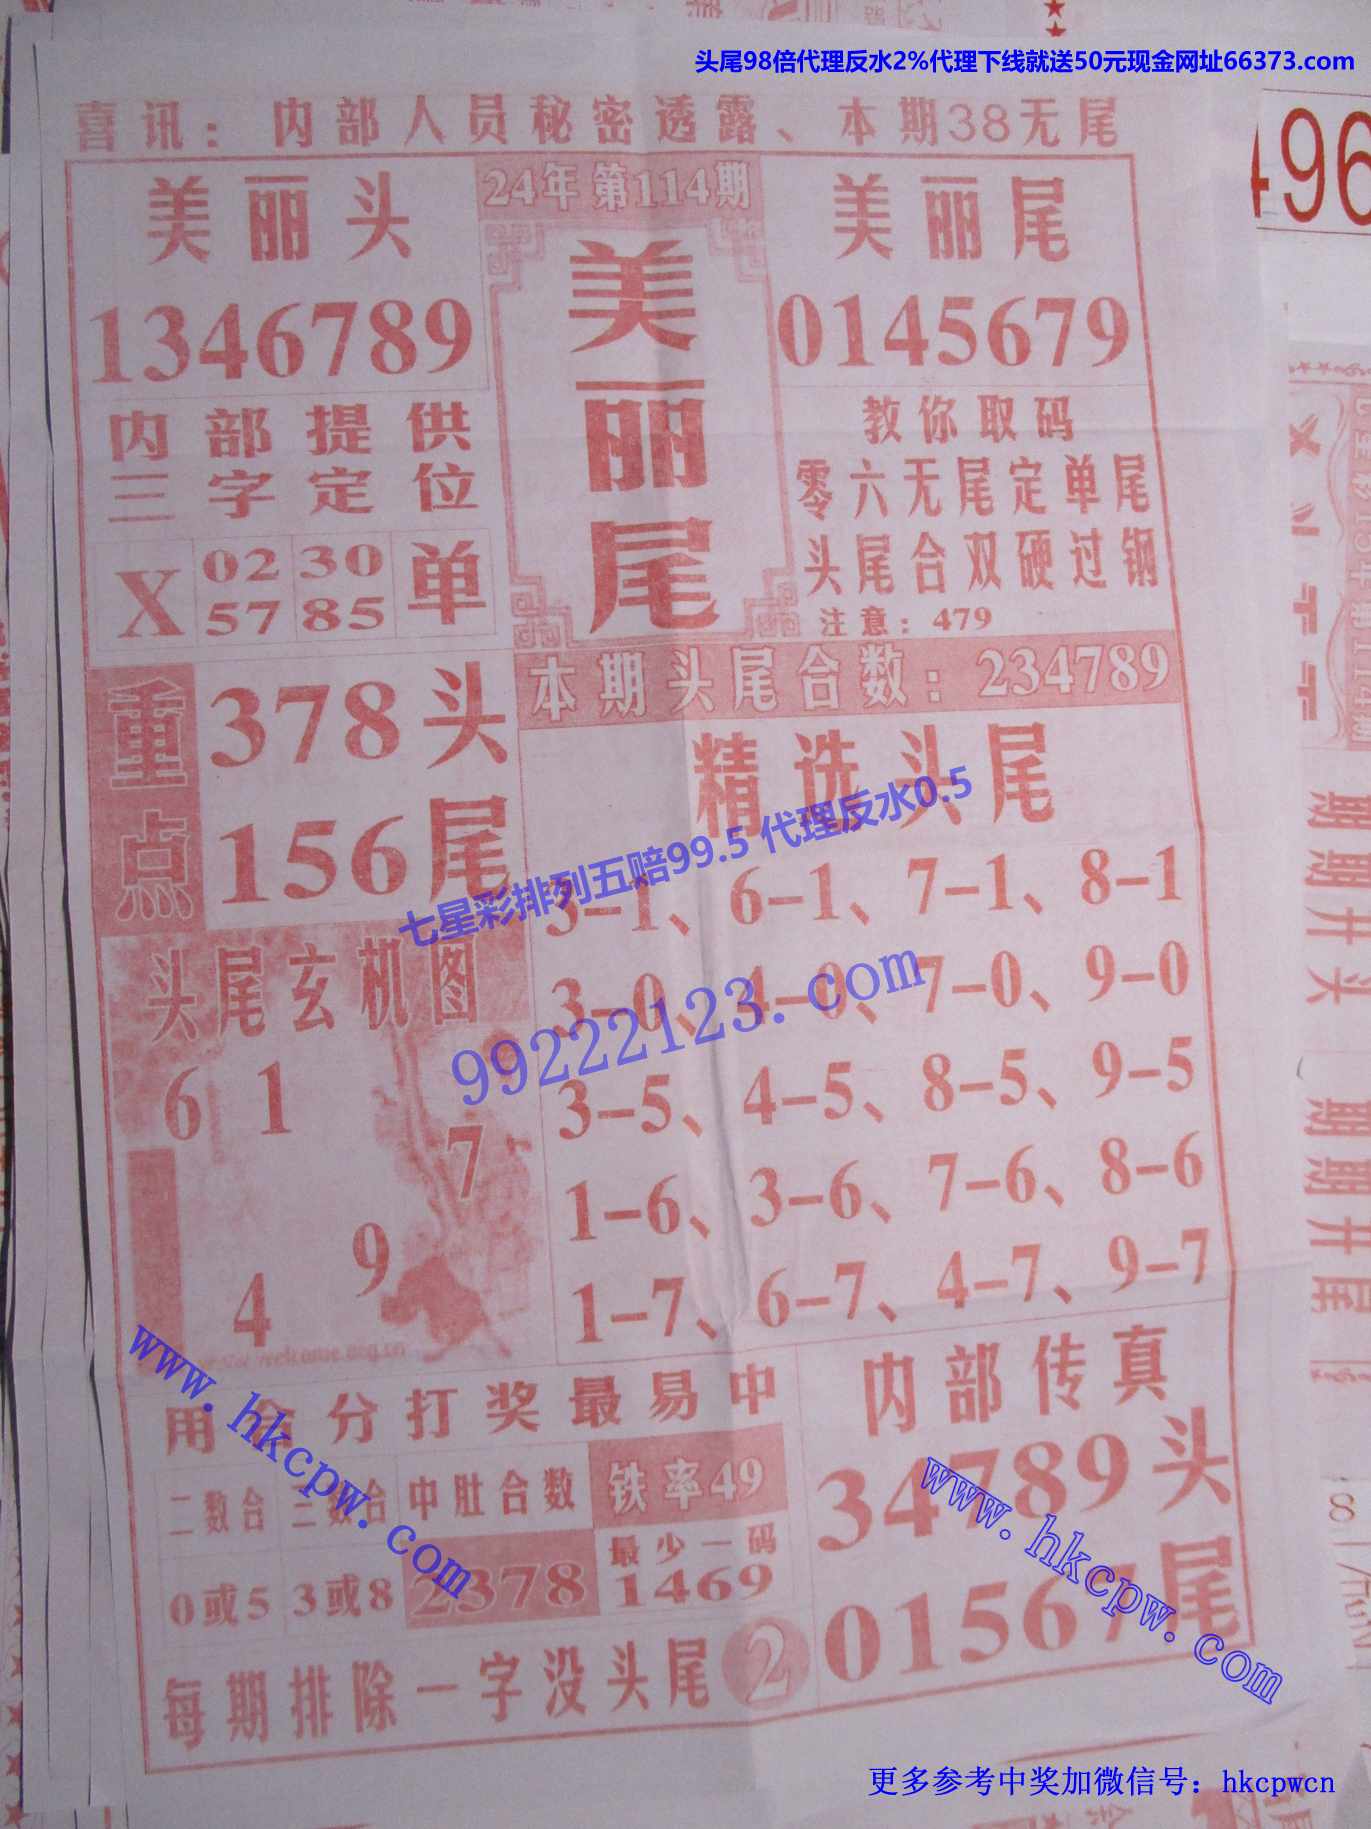 头尾98倍代理反水2%代理下线就送50元现金网址66373.com
喜讯：内部人员秘密透露、本期38无尾
496
美丽头
1346789
24年第114期
美丽尾
美丽尾
0145679
内部提供
三字定位
X
02 30 单
57 85
教你取码
零六无尾定单尾
头尾合双硬过钢
注意：479
重点
378头
156尾
本期头尾合数：234789
精选头尾
3-1、6-1、7-1、8-1
3-0、4-0、7-0、9-0
3-5、4-5、8-5、9-5
1-6、3-6、7-6、8-6
1-7、6-7、4-7、9-7
七星彩排列五赔99.5 代理反水0.5
99222123.com
头尾玄机图
6 1
7
9
4
www.hkcpw.com
用合分打奖最易中
二数合 三数合 中肚合数 铁率49
0或5 3或8 2378
最少一码
1469
每期排除一字没头尾 2
内部传真
34789头
01567尾
www.hkcpw.com
期期开头
期期开尾
8
更多参考中奖加微信号：hkcpwcn